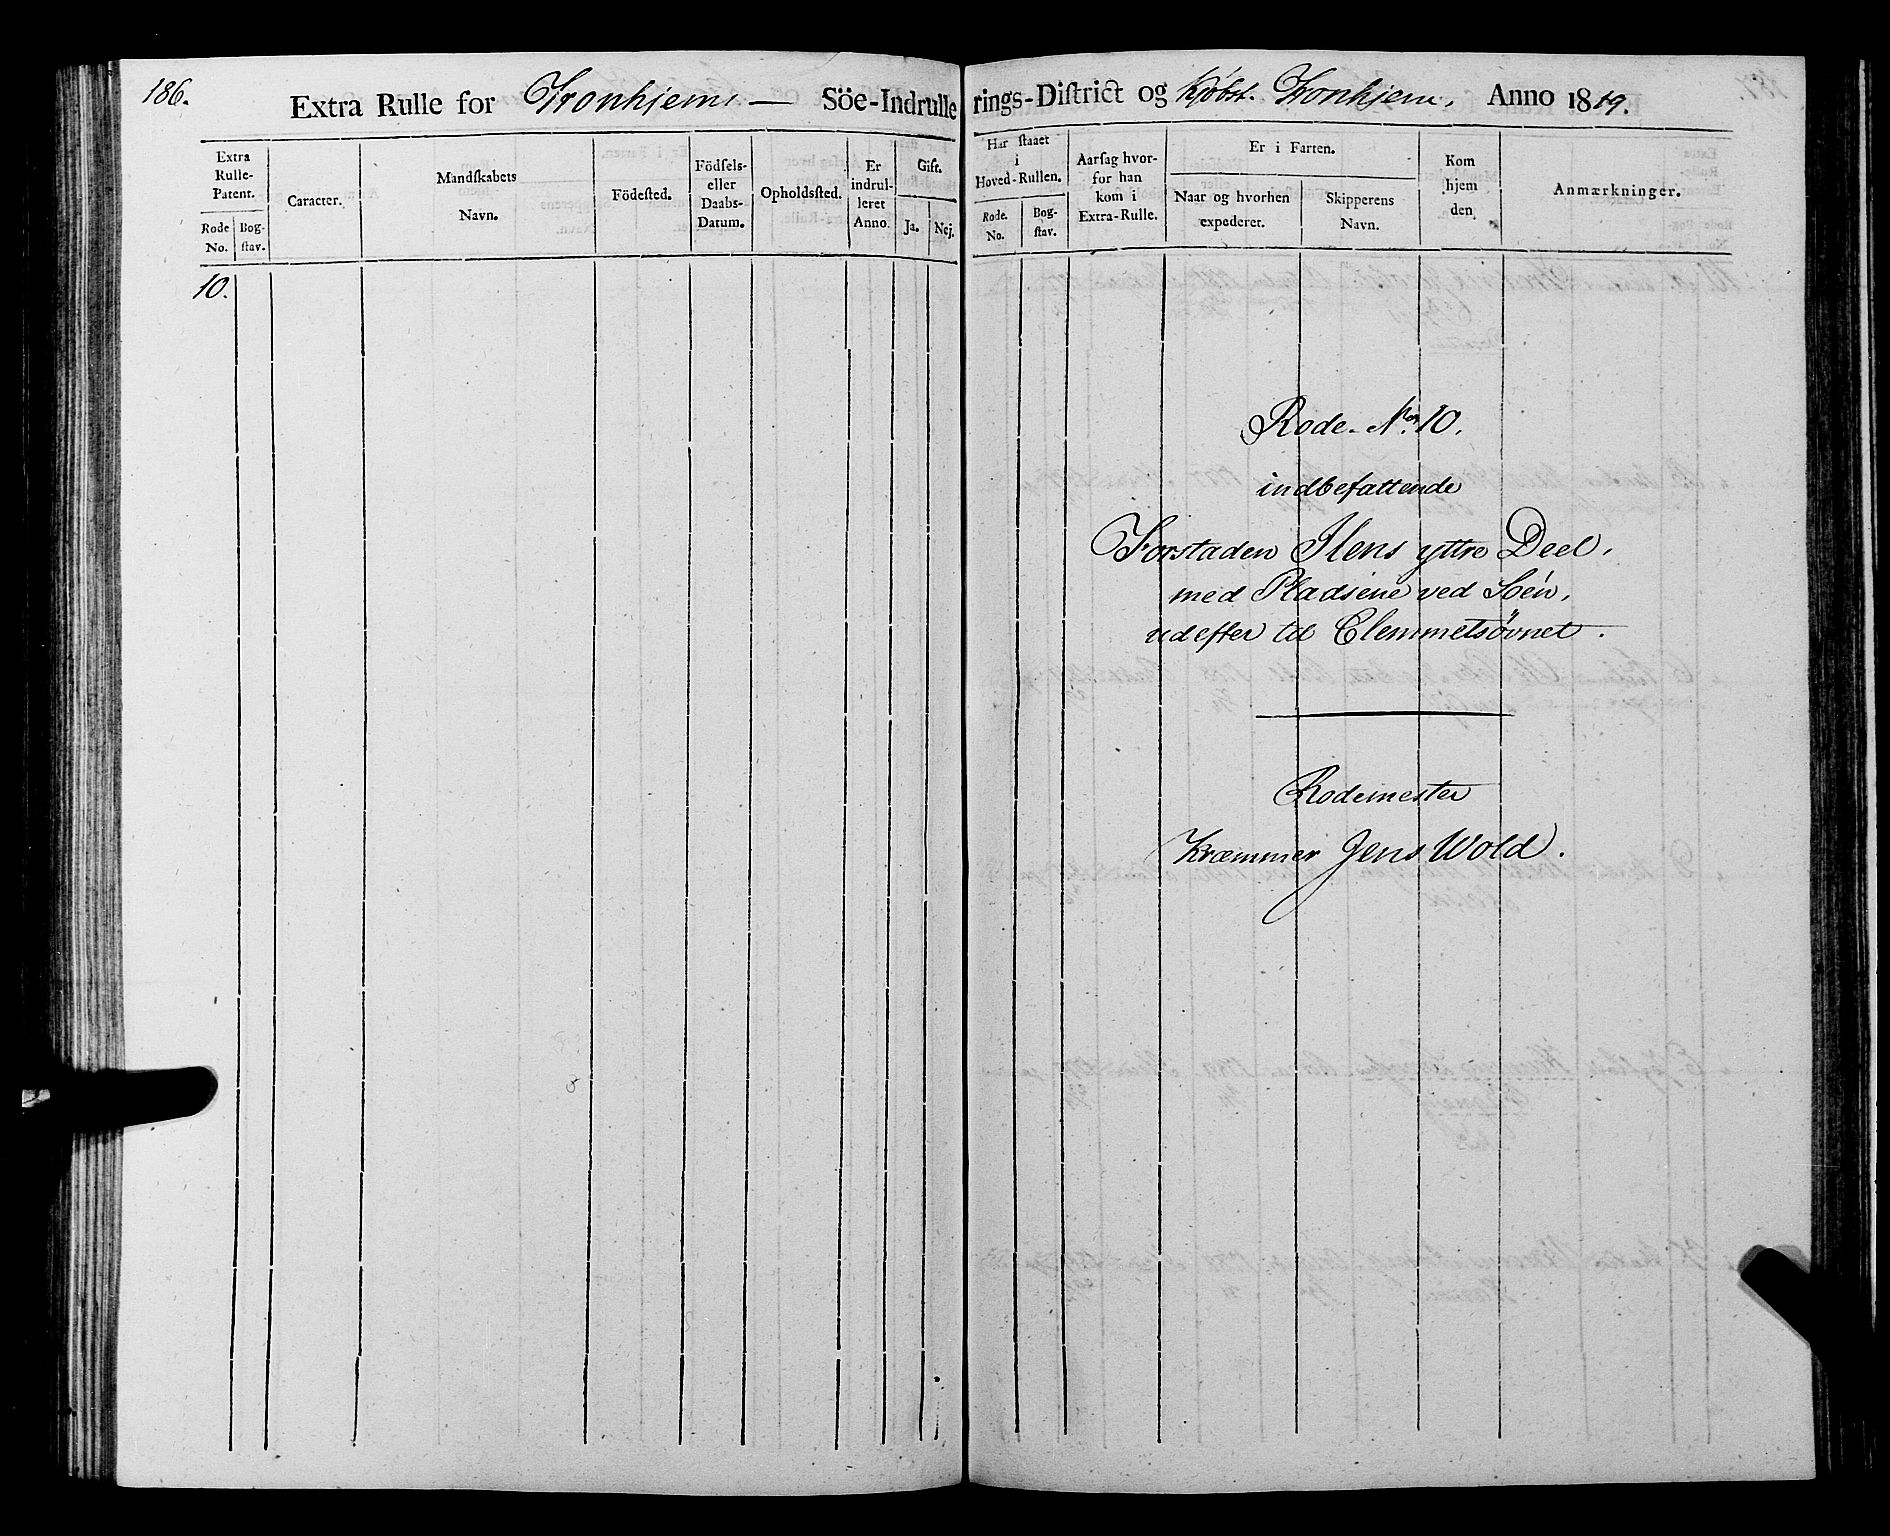 186.
Extra Rulle for Tronhjems — Söe-Indrullerings-District og Kjöbst. Tronhjem, Anno 1819.
Extra Rulle-Patent.
Rode No.
Bog-stav.
Caracter.
Mandskabets Navn.
Födested.
Födsels- eller Daabs-Datum.
Opholdsted.
Er indrul-leret Anno.
Gift.
Ja.
Nej.
Har staaet i Hoved-Rullen.
Rode. No.
Bog-stav.
Aarsag hvor-for han kom i Extra-Rulle.
Er i Farten.
Naar og hvorhen expederet.
Skipperens Navn.
Kom hjem den
Anmærkninger.
10.
Rode No. 10.
indbefattende
Forstaden Ilens yttre Deel,
med Pladsene ved Söen,
udefter til Clemmetsövnet.
Rodemester
Kræmmer Jens Wold.